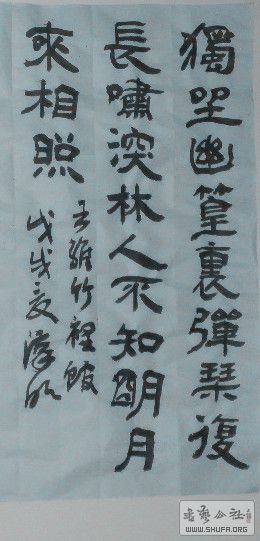 獨坐幽篁裏彈琹復
長嘯深林人不知明月
來相照
王維竹裡館
戊戌夏
WWW.SHUFA.ORG